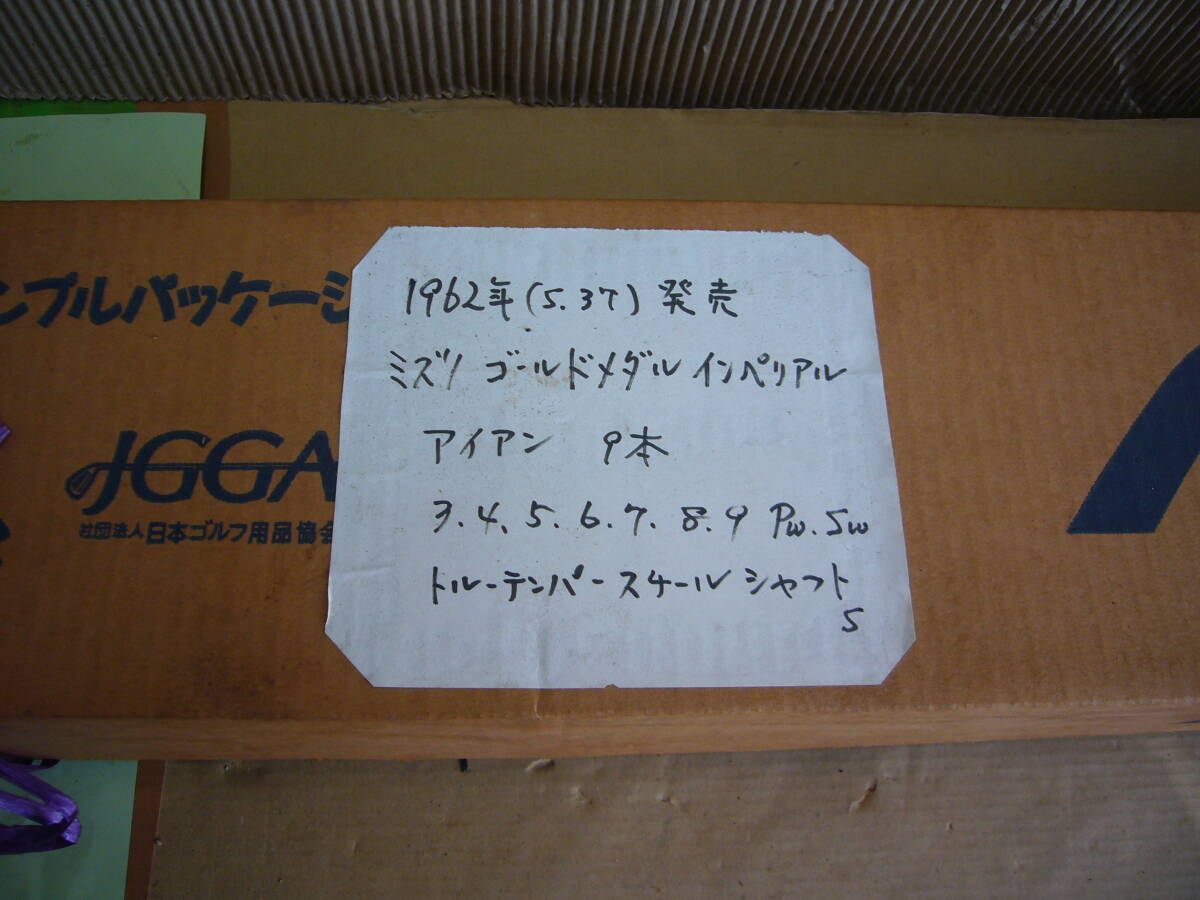 ンプルパッケージ
JGGA
社団法人日本ゴルフ用品協会
1962年(S.37) 発売
ミズノ ゴールドメダル インペリアル
アイアン 9本
3.4.5.6.7.8.9 Pw.Sw
トルーテンパースチールシャフト
S